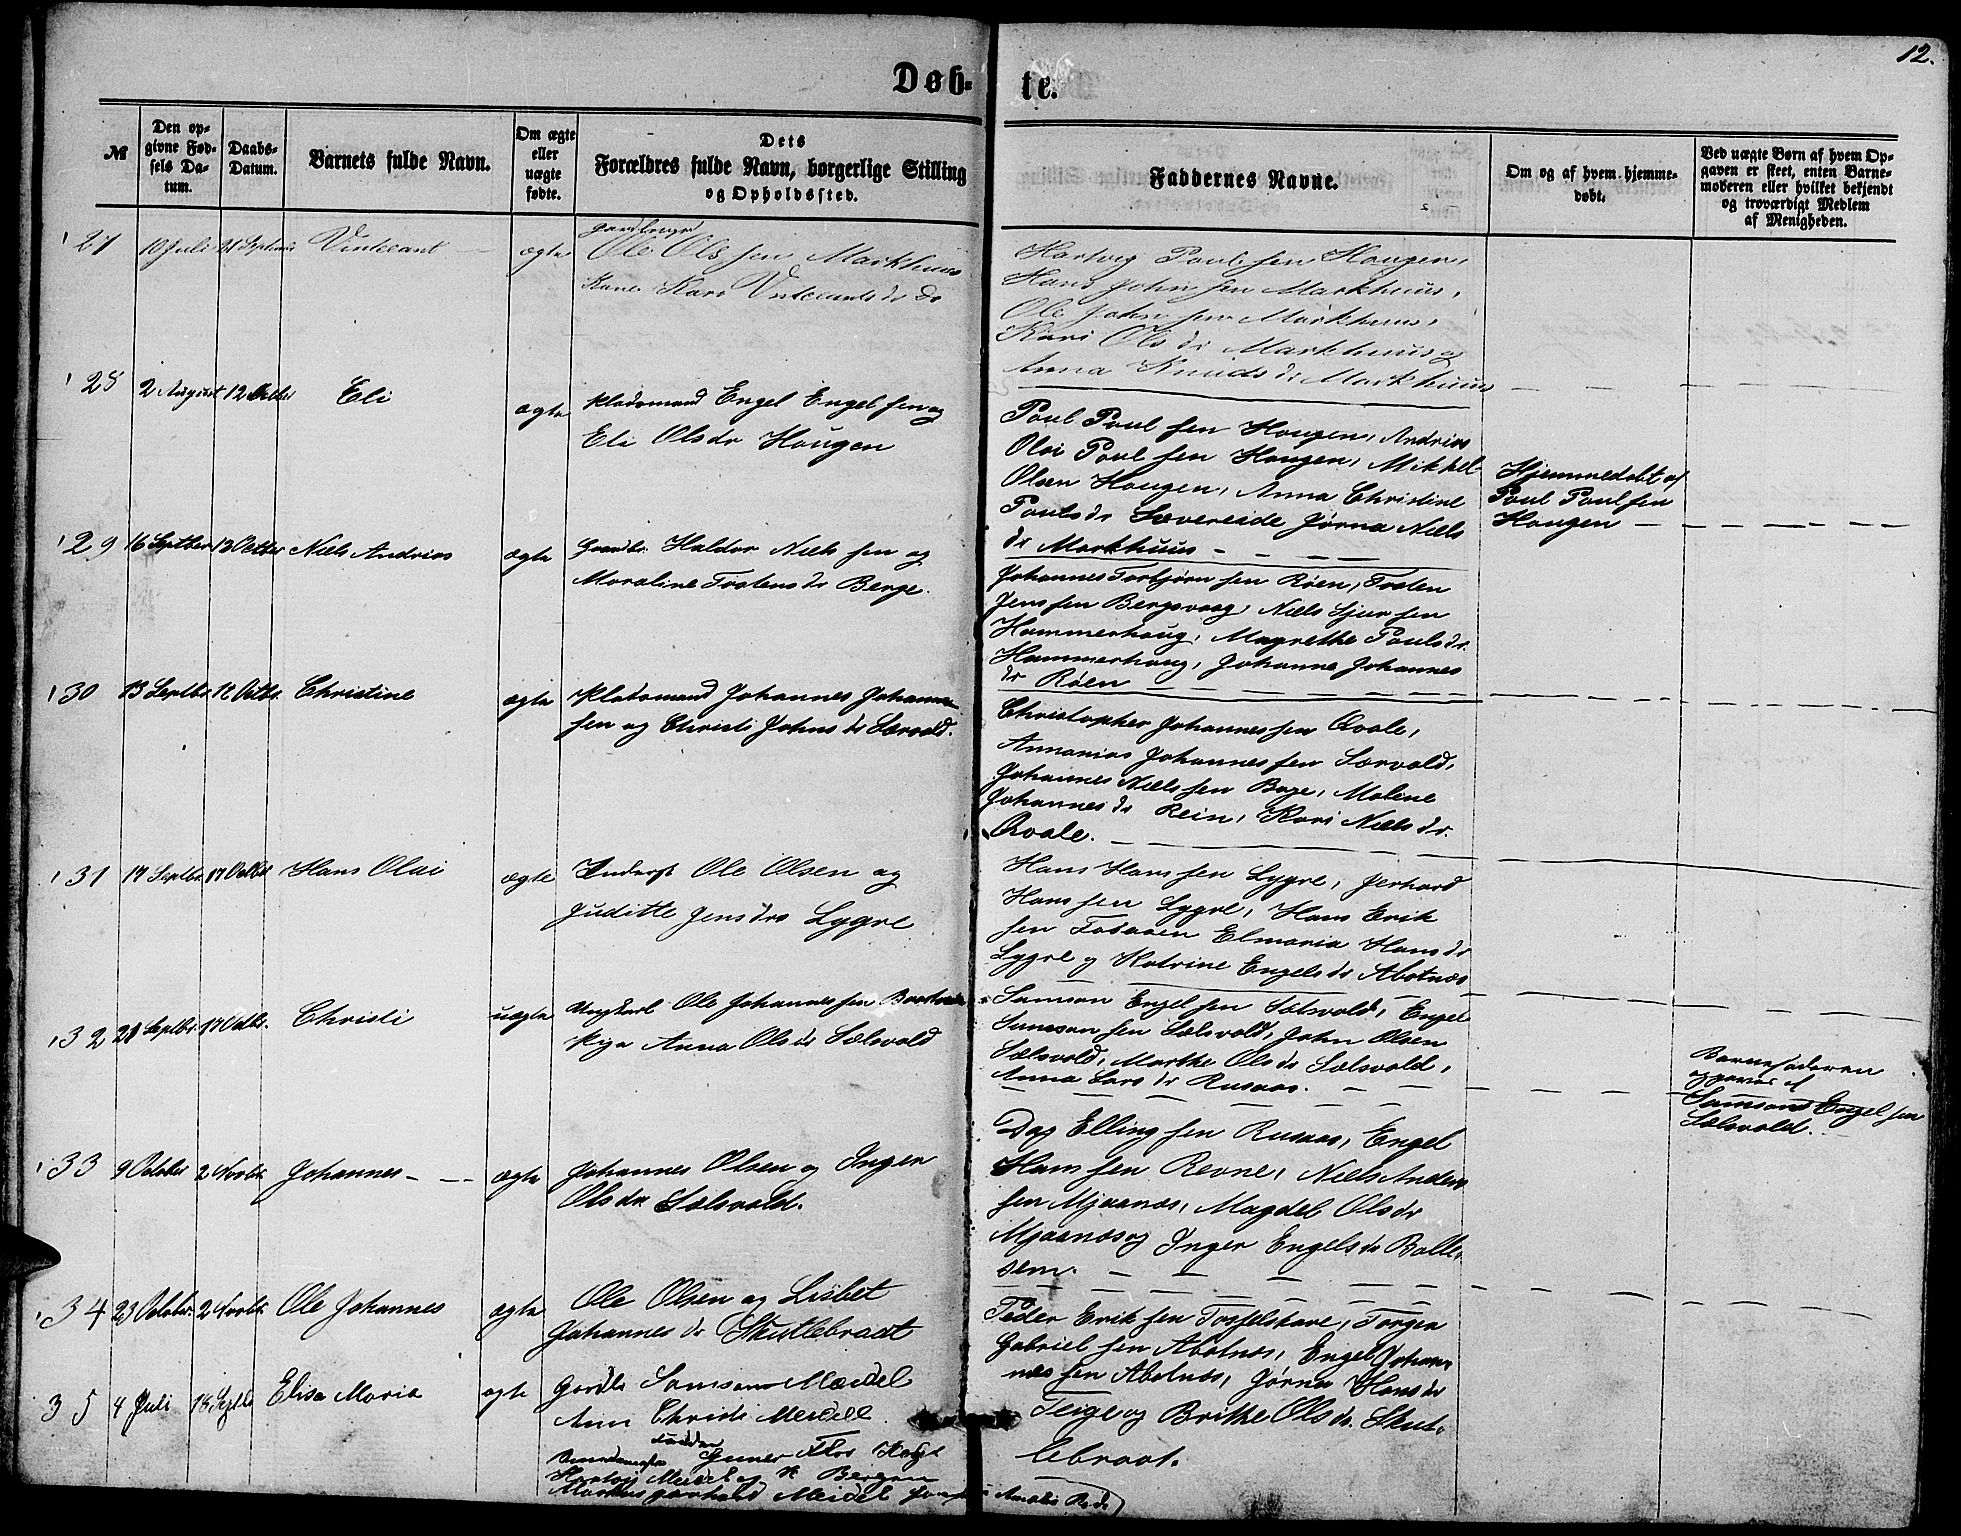 12.
Døb-
te.
№
Den op-
givne Fød-
sels Da-
tum.
Daabs-
Datum.
Barnets fulde Navn.
Om ægte
eller
uægte
fødte.
Dets
Forældres fulde Navn, borgerlige Stilling
og Opholdssted.
Faddernes Navne.
Om og af hvem hjemme-
døbt.
Ved uægte Børn af hvem Op-
gaven er skeet, enten Barne-
moderen eller hvilket bekjendt
og troværdigt Medlem
af Menigheden.
10 Juli 21 Septemb Vincent ægte
Ole Olssen Markhuus
Kone Kari Vincentsdr do
Hartvig Poulssen Hougen,
Hans Johnssen Markhuus,
Ole Johnssen Markhuus,
Kari Olsdr Markhuus og
Anna Knudsdr Markhuus
2 August 12 Octbr Eli ægte
Pladsmand Engel Engelsen og
Eli Olsdr Hougen
Poul Poulsen Hougen, Andrias
Olai Poulsen Hougen, Mikkel
Olsen Hougen, Anna Christine
Poulsdr Sævereide Jørna Niels
dr Markhuus
Hjemmedøbt af
Poul Poulsen
Hougen
29 16 Septber 12 Octber Niels Andrias ægte
Gaardbr. Haldor Nielssen og
Moraline Tostensdr Berge.
Johannes Torbjørnsen Røen, Tosten
Jenssen Bergsvaag, Niels Sjursen
Hammerhoug, Magrethe Poulsdr.
Hammerhoug, Johanne Johannes
dr Røen
30 13 Septbr 12 Octbr. Christine ægte
Pladsmand Johannes Johannes
sen og Christi Johnsdr Særvold.
Christopher Johannessen Qvale,
Annanias Johannessen Særvold,
Johannes Nielssen Bage, Malene
Johannesdr Rein, Kari Nielsdr.
Qvale.
31 17 Septbr 17 Octbr Hans Olai ægte
Ole Olsen og
Juditte Jensdr Lygre
Hans Hanssen Lygre, Jerhard
Hanssen Lygre, Hans Erik
sen Elmaria Hansdr
Lygre og Katrine Engelsdr Abotnæs
32 21 Septbr 17 Octbr. Christi uægte
Ungkarl Ole Johannessen
Pige Anna Olsdr Sælsvold
Samson Engelsen Sælsvold, Engel
Samsonsen Sælsvold, John Olsen
Sælsvold, Marthe Olsdr Sælsvold,
Anna Larsdr Rusaas.
Barnefaderen
opgaves af
Samson Engelsen
Sælsvold.
33 9 October 2 Novbr Johannes ægte
Johannes Olsen og Inger
Olsdr Sælsvold.
Dag Ellingsen Rusaas, Engel
Hanssen Revne, Niels Anders
sen Mjaanæs, Magdel Olsdr
Mjaanæs og Inger Engelsdr Balter
sem.
34 23 October 2 Novbr Ole Johannes ægte
Ole Olsen og Lisbet
Johannesdr Skutlebraat
Peder Eriksen Torgin
Gabrielsen Abotnæs, Engel Johan
nessen Abotnæs, Jørna Hansdr
Teige og Brithe Olsdr. Skut-
lebraat.
35 4 Juli 18 Septb Elisa Maria ægte
Gardb Samson Meidel
Ann Christi Meidell.
Fadder
Hartvig Meidel og Bergen
Markus Gerhard Meidel